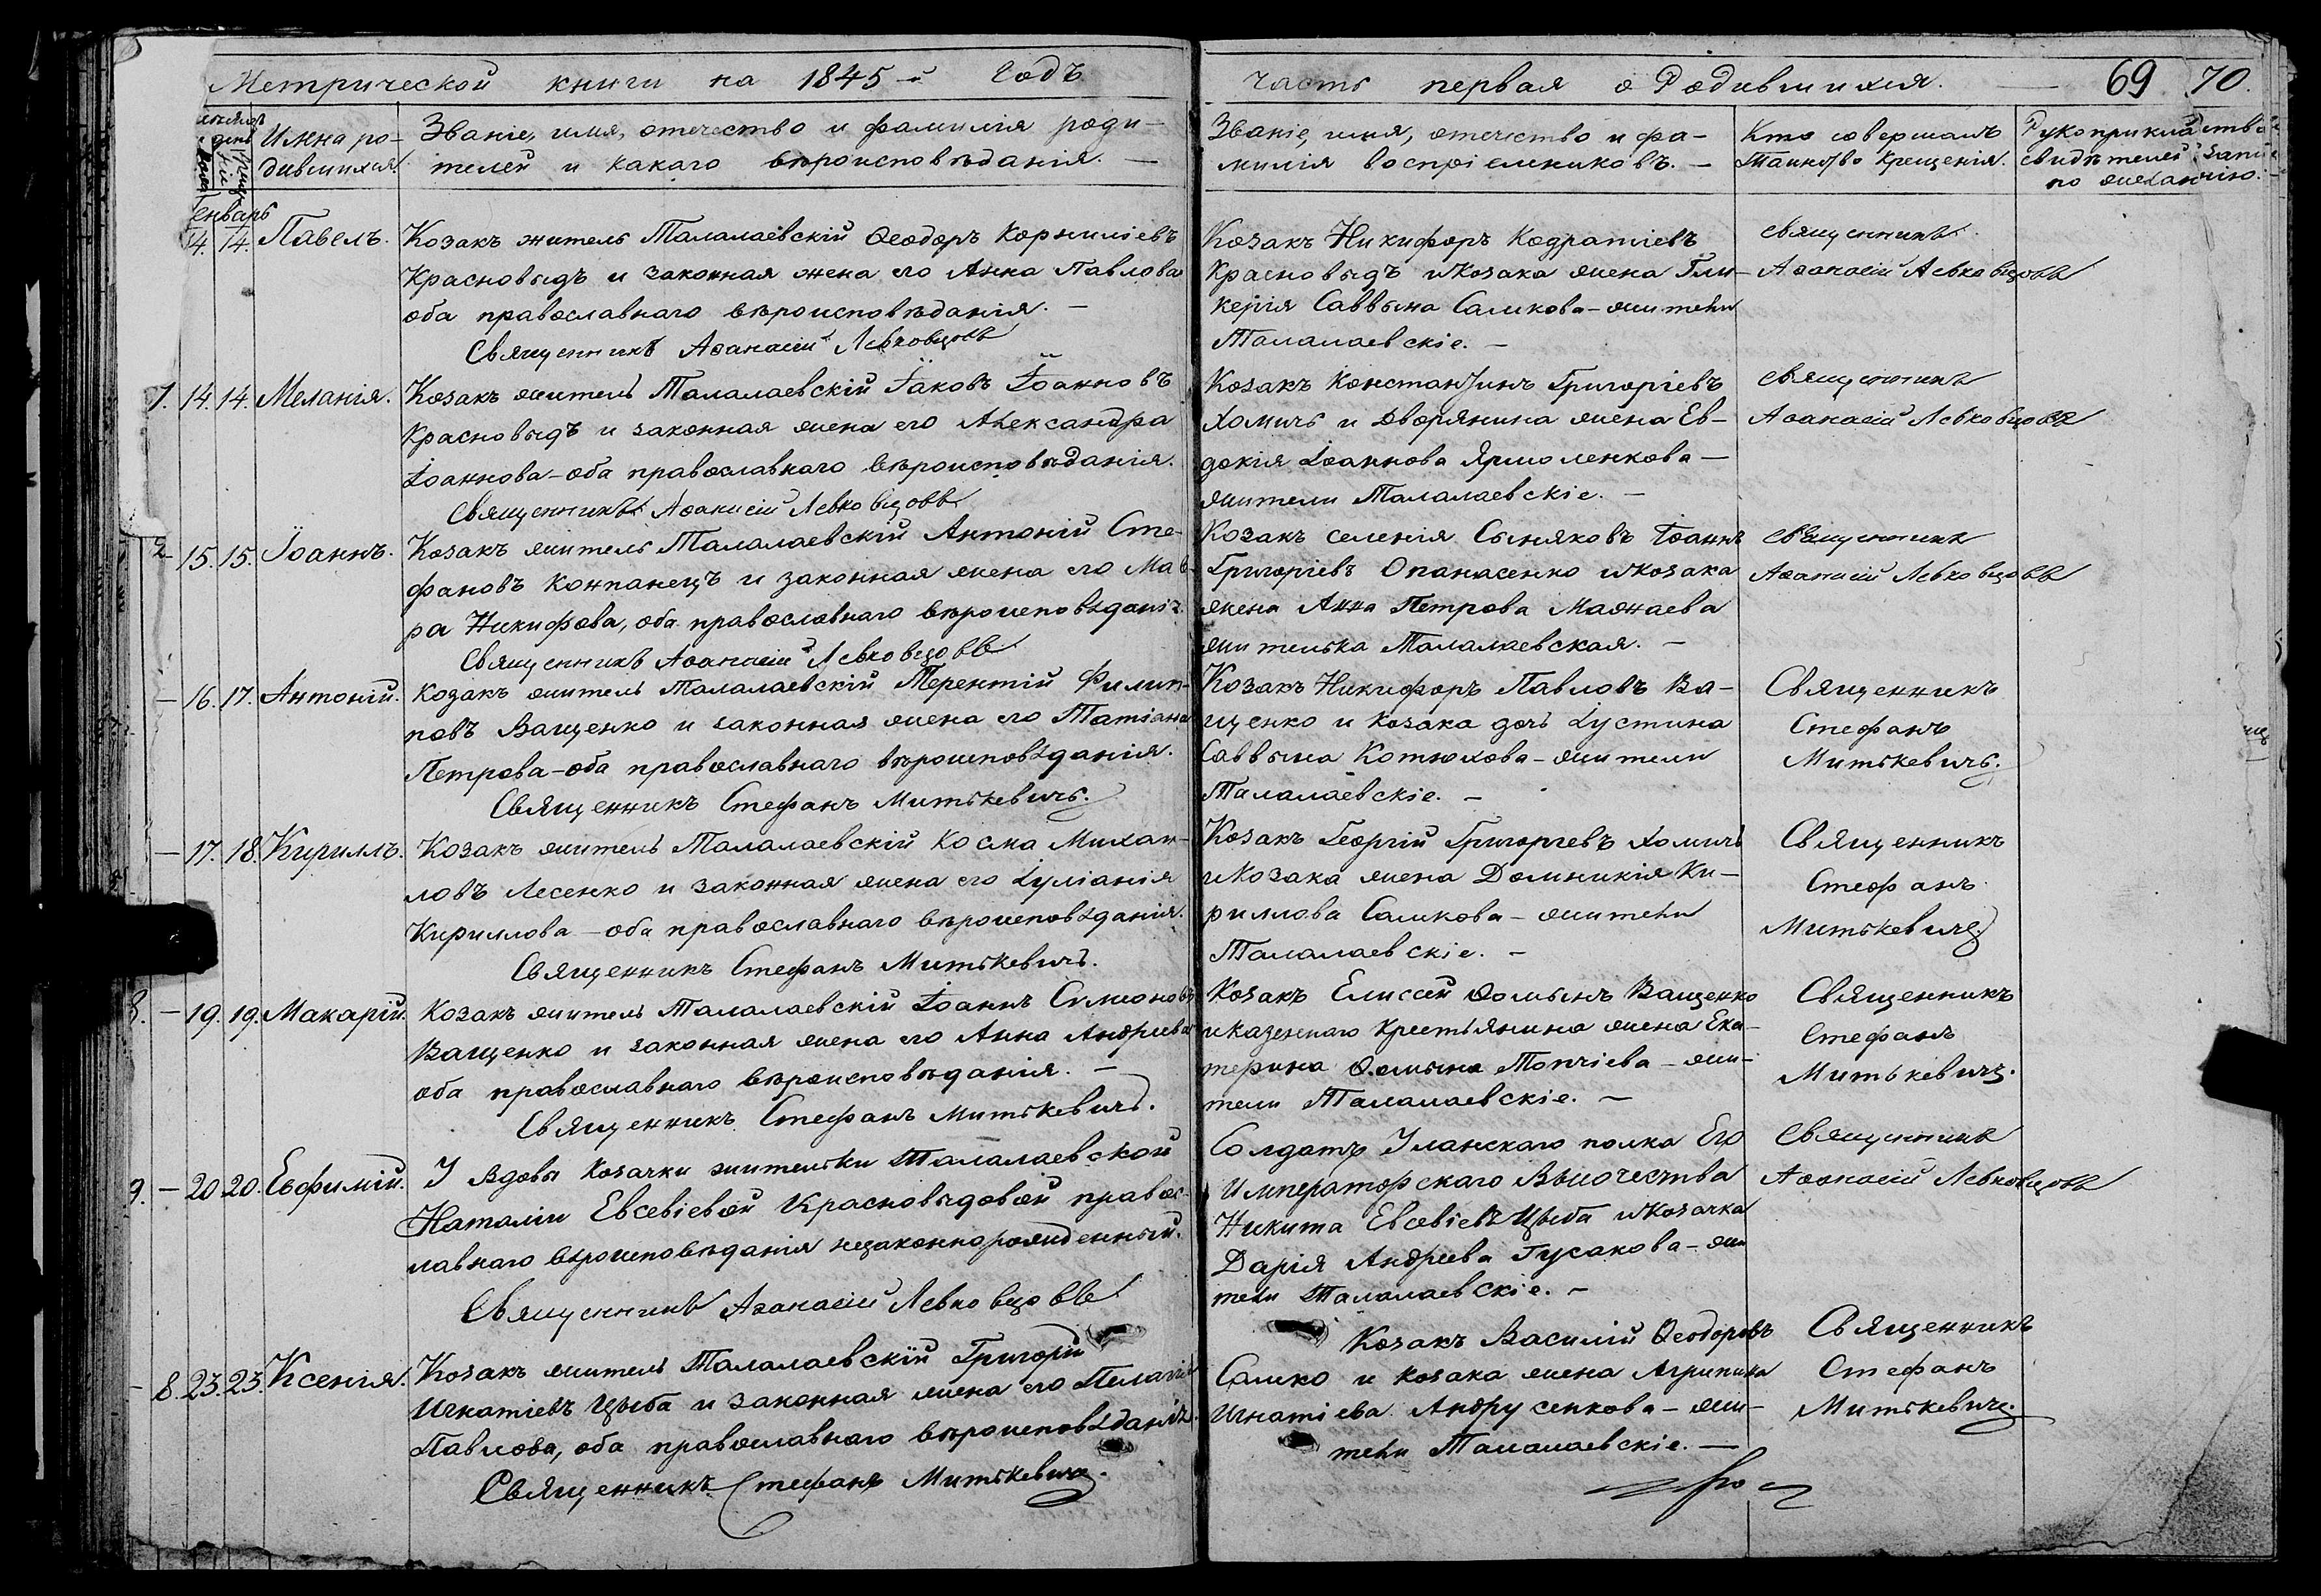 Метрической книги на 1845-й годъ
часть первая о Родившихся. 69 70.
Имяна ро-
дившихся.
Званіе, имя, отечество и фамилія роди-
телей и какаго вѣроисповѣданія. —
Званіе, имя, отечество и фа-
милія воспріемниковъ. —
Кто совершалъ
таинство крещенія.
Рукоприкладство
свидѣтелей записи
по желанію.
Генварь
14. 14. Павелъ.
Козакъ житель Талалаевскій Ѳеодоръ Корниліевъ
Красновыдъ и законная жена его Анна Павлова
оба православнаго вѣроисповѣданія. —
Священникъ Аѳанасій Левковцовъ
Козакъ Никифоръ Кодратіевъ
Красновыдъ и козака жена Гли-
керія Саввына Самкова - жители
Талалаевскіе. —
священникъ
Аѳанасій Левковцовъ
7. 14. 14. Меланія.
Козакъ житель Талалаевскій Іаковъ Іоанновъ
Красновыдъ и законная жена его Александра
Іоаннова - оба православнаго вѣроисповѣданія.
Священникъ Аѳанасій Левковцовъ
Козакъ Константинъ Григоріевъ
Хомичъ и дворянина жена Ев-
докія Іоаннова Ярмоленкова —
жители Талалаевскіе. —
священникъ
Аѳанасій Левковцовъ
2 - 15. 15. Іоаннъ.
Козакъ житель Талалаевскій Антоній Сте-
фановъ Компанецъ и законная жена его Мав-
ра Никифова, оба православнаго вѣроисповѣданія.
Священникъ Аѳанасій Левковцовъ
Козакъ селенія Сыняковъ Іоаннъ
Григоріевъ Опанасенко и козака
жена Анна Петрова Мажаева
жителька Талалаевская. —
священникъ
Аѳанасій Левковцовъ
— 16. 17. Антоній.
козакъ житель Талалаевскій Терентій Филип-
повъ Ващенко и законная жена его Татіана
Петрова - оба православнаго вѣроисповѣданія.
Священникъ Стефанъ Митькевичъ.
Козакъ Никифоръ Павловъ Ва-
щенко и козака дочь Іустина
Саввына Котюхова - жители
Талалаевскіе. —
Священникъ
Стефанъ
Митькевичъ.
— 17. 18. Кириллъ.
Козакъ житель Талалаевскій Косма Михаи-
ловъ Лесенко и законная жена его Іуліанія
Кириллова - оба православнаго вѣроисповѣданія.
Священникъ Стефанъ Митькевичъ.
Козакъ Георгій Григоріевъ Хомичъ
и козака жена Домникія Ки-
риллова Самкова - жители
Талалаевскіе. —
Священникъ
Стефанъ
Митькевичъ.
8. — 19. 19. Макарій.
Козакъ житель Талалаевскій Іоаннъ Симеоновъ
Ващенко и законная жена его Анна Андреева
оба православнаго вѣроисповѣданія. —
Священникъ Стефанъ Митькевичъ.
Козакъ Елисей Ѳомынъ Ващенко
и казеннаго крестьянина жена Ека-
терина Ѳомына Топчіева - жи-
тели Талалаевскіе. —
Священникъ
Стефанъ
Митькевичъ.
9. — 20. 20. Евфимій.
У вдовы козачки жительки Талалаевской
Наталіи Евсевіевой Красновыдовой правос-
лавнаго вѣроисповѣданія незаконнорожденный.
Священникъ Аѳанасій Левковцовъ
Солдатъ Уланскаго полка Его
Императорскаго Высочества
Никита Евсевіевъ Цыба и козачка
Дарія Андреева Гусакова - жи
тели Талалаевскіе. —
священникъ
Аѳанасій Левковцовъ
— 8. 23. 23. Ксенія.
Козакъ житель Талалаевскій Григорій
Игнатіевъ Цыба и законная жена его Пелагія
Павлова, оба православнаго вѣроисповѣданія.
Священникъ Стефанъ Митькевичъ.
Козакъ Василій Ѳеодоровъ
Самко и козака жена Агрипина
Игнатіева Андрусенкова - жи-
тели Талалаевскіе. —
Священникъ
Стефанъ
Митькевичъ.